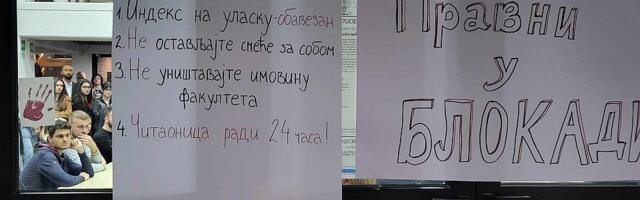 1. Индекс на уласку-обавезан
2. Не остављајте смеће за собом
3. Не уништавајте имовину
факултета
4. Читаоница ради 24 часа!
Правни
у
БЛОКАДИ